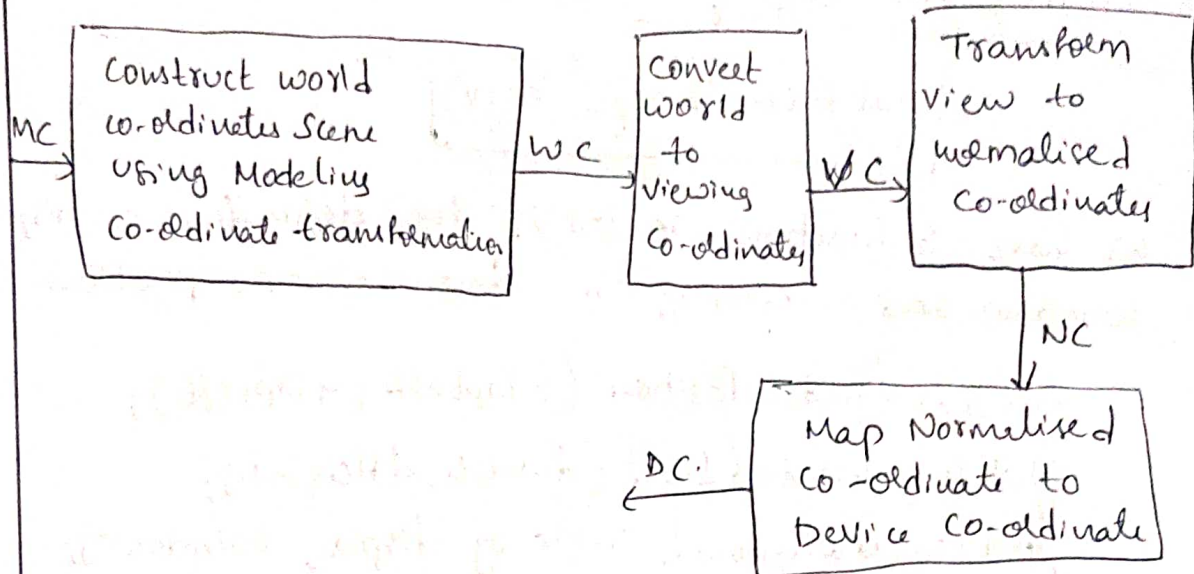 MC
Construct world
co-ordinates Scene
Using Modeling
Co-ordinate transformation
WC
Convert
World
to
viewing
Co-ordinates
VC
Transform
View to
normalised
Co-ordinates
NC
Map Normalised
Co-ordinate to
Device Co-ordinate
DC.